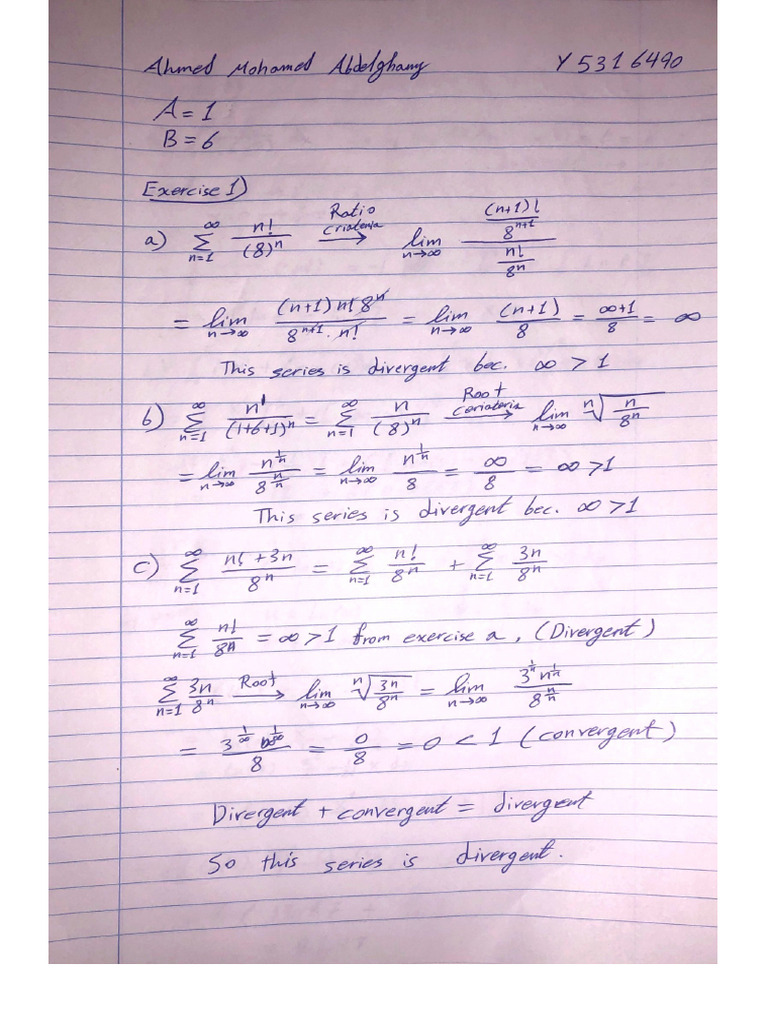 Ahmed Mohamed Abdelghany Y5316490
A = 1
B = 6
Exercise 1)
a) ∑_{n=1}^{∞} n!/(8)^n Ratio Criateria → lim_{n→∞} ((n+1)!/8^{n+1})/(n!/8^n)
= lim_{n→∞} (n+1) n! 8^n / 8^{n+1} . n! = lim_{n→∞} (n+1)/8 = ∞+1/8 = ∞
This series is divergent bec. ∞ > 1
b) ∑_{n=1}^{∞} n^1/(1+6+1)^n = ∑_{n=1}^{∞} n/(8)^n Root Coriateria → lim_{n→∞} ⁿ√(n/8^n)
= lim_{n→∞} n^{1/n}/8^{n/n} = lim_{n→∞} n^{1/n}/8 = ∞/8 = ∞ > 1
This series is divergent bec. ∞ > 1
c) ∑_{n=1}^{∞} n! + 3n/8^n = ∑_{n=1}^{∞} n!/8^n + ∑_{n=1}^{∞} 3n/8^n
∑_{n=1}^{∞} n!/8^n = ∞ > 1 from exercise a, (Divergent)
∑_{n=1}^{∞} 3n/8^n Root → lim_{n→∞} ⁿ√(3n/8^n) = lim_{n→∞} 3^{1/n} n^{1/n}/8^{n/n}
= 3^{1/∞} ∞^{1/∞}/8 = 0/8 = 0 < 1 (convergent)
Divergent + convergent = divergent
So this series is divergent.